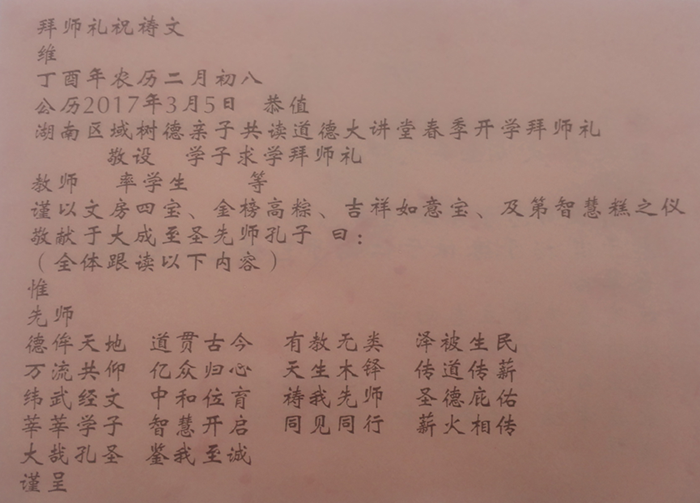 拜师礼祝祷文
维
丁酉年农历二月初八
公历2017年3月5日 恭值
湖南区域树德亲子共读道德大讲堂春季开学拜师礼
敬设 学子求学拜师礼
教师 率学生 等
谨以文房四宝、金榜高粽、吉祥如意宝、及第智慧糕之仪
敬献于大成至圣先师孔子 曰：
（全体跟读以下内容）
惟
先师
德侔天地 道贯古今 有教无类 泽被生民
万流共仰 亿众归心 天生木铎 传道传薪
纬武经文 中和位育 祷我先师 圣德庇佑
莘莘学子 智慧开启 同见同行 薪火相传
大哉孔圣 鉴我至诚
谨呈